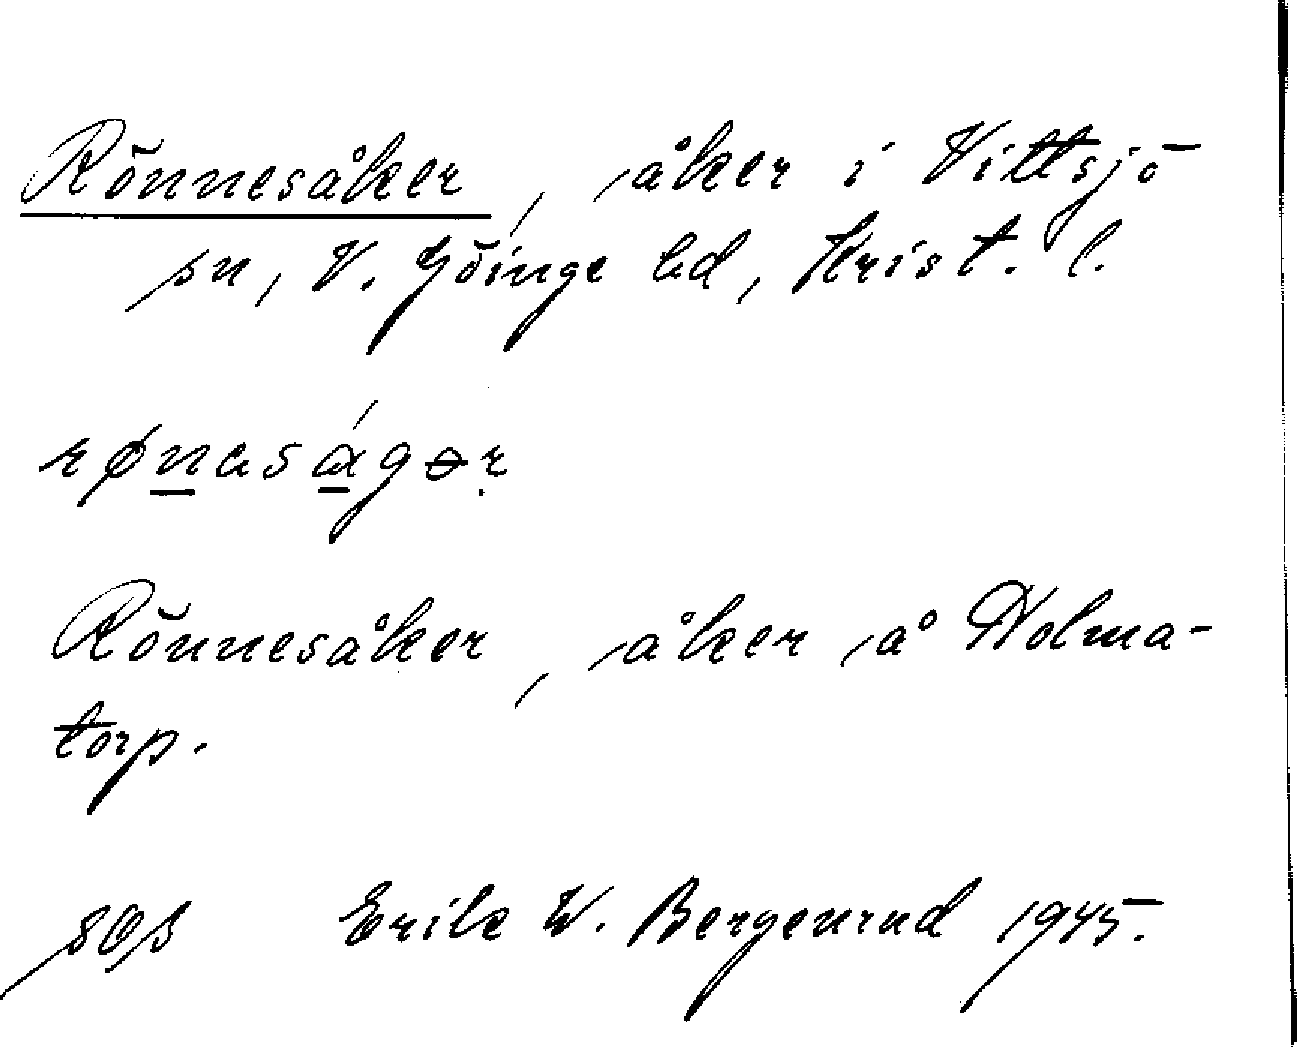 Rönnesåker, åker i Vittsjö
sn, V. Göinge hd, Krist. l.
rønaságər
Rönnesåker, åker å Holma-
torp.
Erik W. Bergenrud 1945.